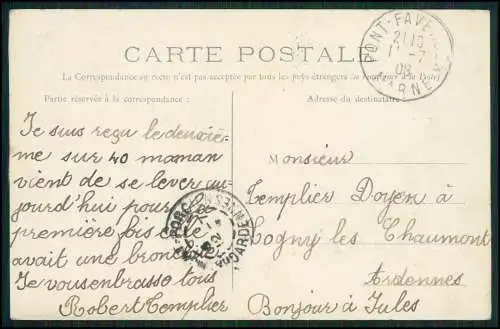 CARTE POSTALE
La Correspondance au recto n'est pas acceptée par tous les pays étrangers (se renseigner à la Poste)
Partie réservée à la correspondance :
Adresse du destinataire :
PONT-FAVE
21
MARNE
Je suis reçu le deuxiè-
me sur 40 maman
vient de se lever au-
jourd'hui pour la
première fois
avait une bronchite
Je vous embrasse tous
Robert Templier
Monsieur
Templier Doyen à
Logny les Chaumont
Ardennes
Bonjour à Jules
ARDENNES